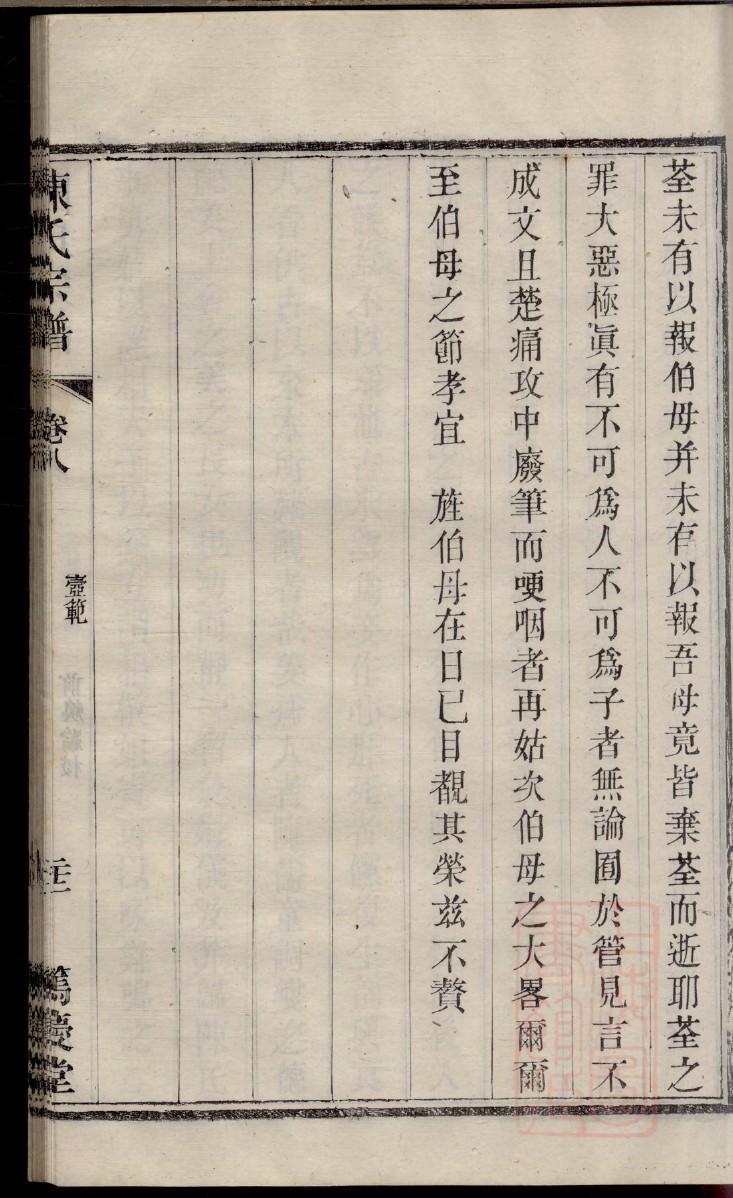 荃未有以報伯母并未有以報吾母竟皆棄荃而逝耶荃之
罪大惡極眞有不可爲人不可爲子者無論囿於管見言不
成文且楚痛攻中廢筆而哽咽者再姑次伯母之大畧爾爾
至伯母之節孝宜　旌伯母在日已目覩其榮兹不贅
陳氏宗譜
卷八
壼範
篤慶堂